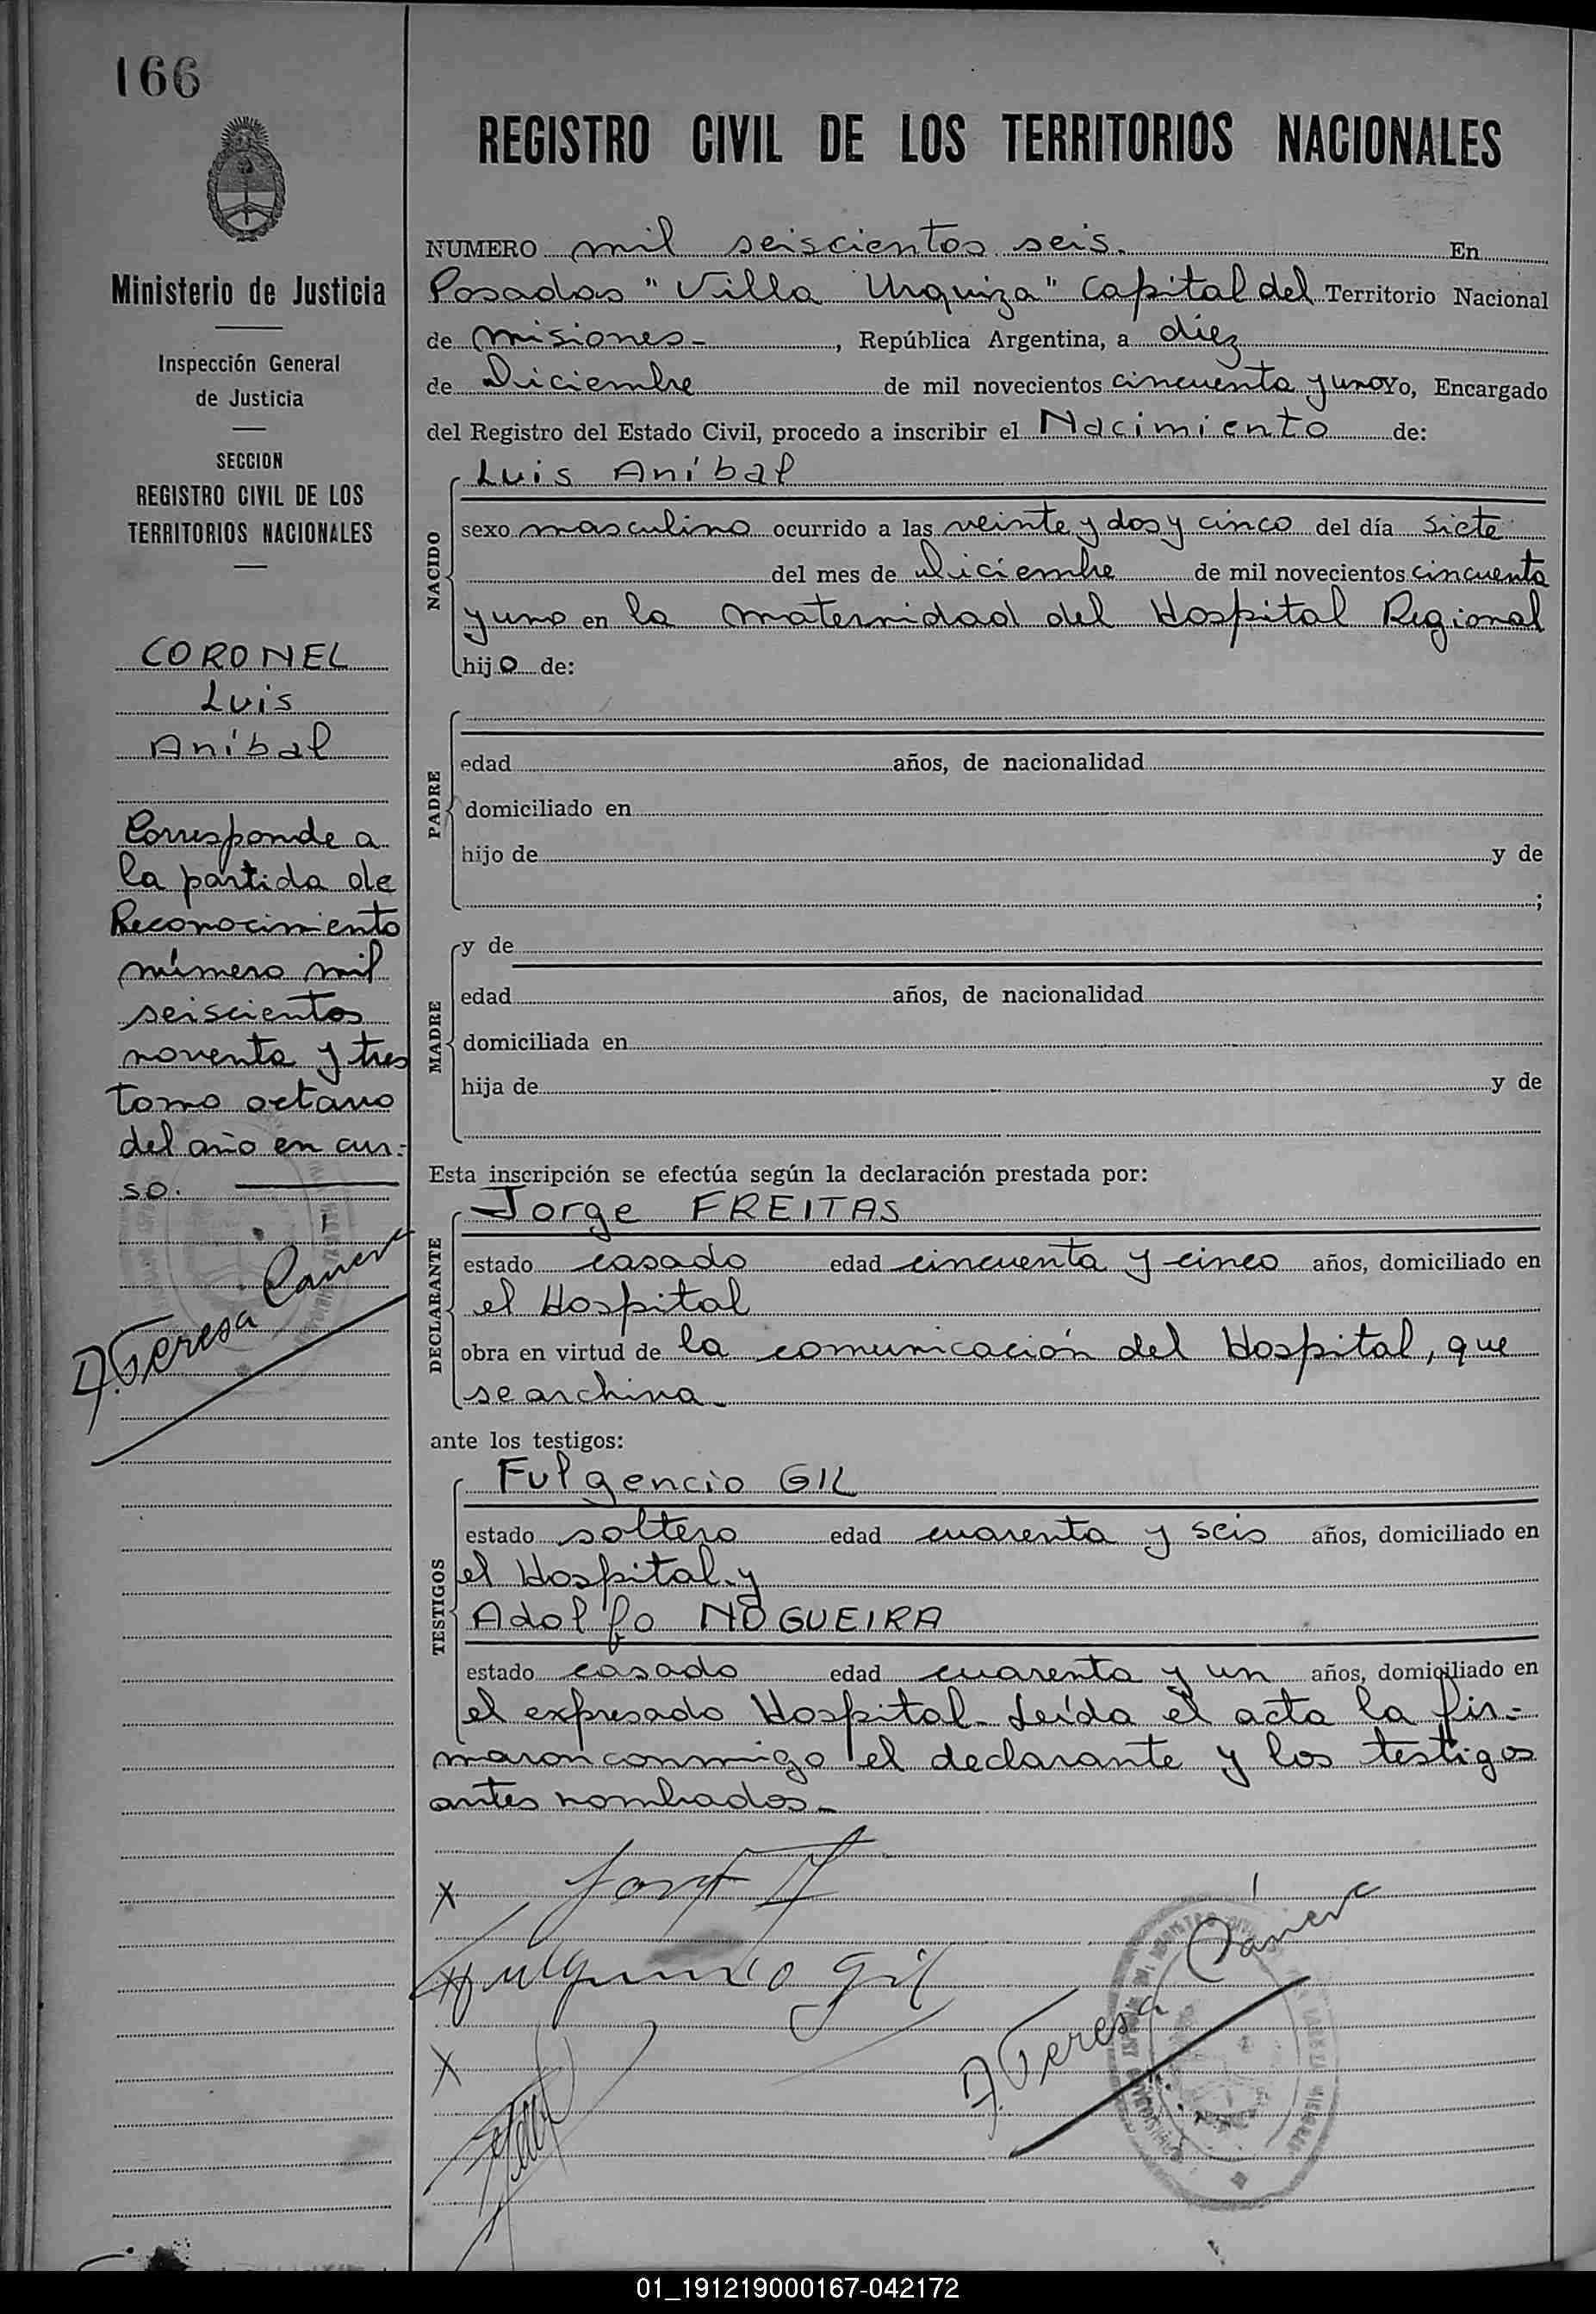 166
Ministerio de Justicia
Inspección General
de Justicia
SECCION
REGISTRO CIVIL DE LOS
TERRITORIOS NACIONALES
CORONEL
Luis
Aníbal
Corresponde a
la partida de
Reconocimiento
número mil
seiscientos
noventa y tres
tomo octavo
del año en cur-
so.
REGISTRO CIVIL DE LOS TERRITORIOS NACIONALES
NUMERO mil seiscientos seis. En
Posadas "Villa Urquiza" Capital del Territorio Nacional
de Misiones- , República Argentina, a diez
de Diciembre de mil novecientos cincuenta y uno Yo, Encargado
del Registro del Estado Civil, procedo a inscribir el Nacimiento de:
NACIDO
Luis Aníbal
sexo masculino ocurrido a las veinte y dos y cinco del día siete
del mes de Diciembre de mil novecientos cincuenta
y uno en la maternidad del Hospital Regional
hijo de:
PADRE
edad años, de nacionalidad
domiciliado en
hijo de y de
;
MADRE
y de
edad años, de nacionalidad
domiciliada en
hija de y de
Esta inscripción se efectúa según la declaración prestada por:
DECLARANTE
Jorge FREITAS
estado casado edad cincuenta y cinco años, domiciliado en
el Hospital
obra en virtud de la comunicación del Hospital, que
se archiva-
ante los testigos:
TESTIGOS
Fulgencio GIL
estado soltero edad cuarenta y seis años, domiciliado en
el Hospital y
Adolfo NOGUEIRA
estado casado edad cuarenta y un años, domiciliado en
el expresado Hospital- Leída el acta la fir-
maron conmigo el declarante y los testigos
antes nombrados-
X
Fulgencio Gil
X
01_191219000167-042172